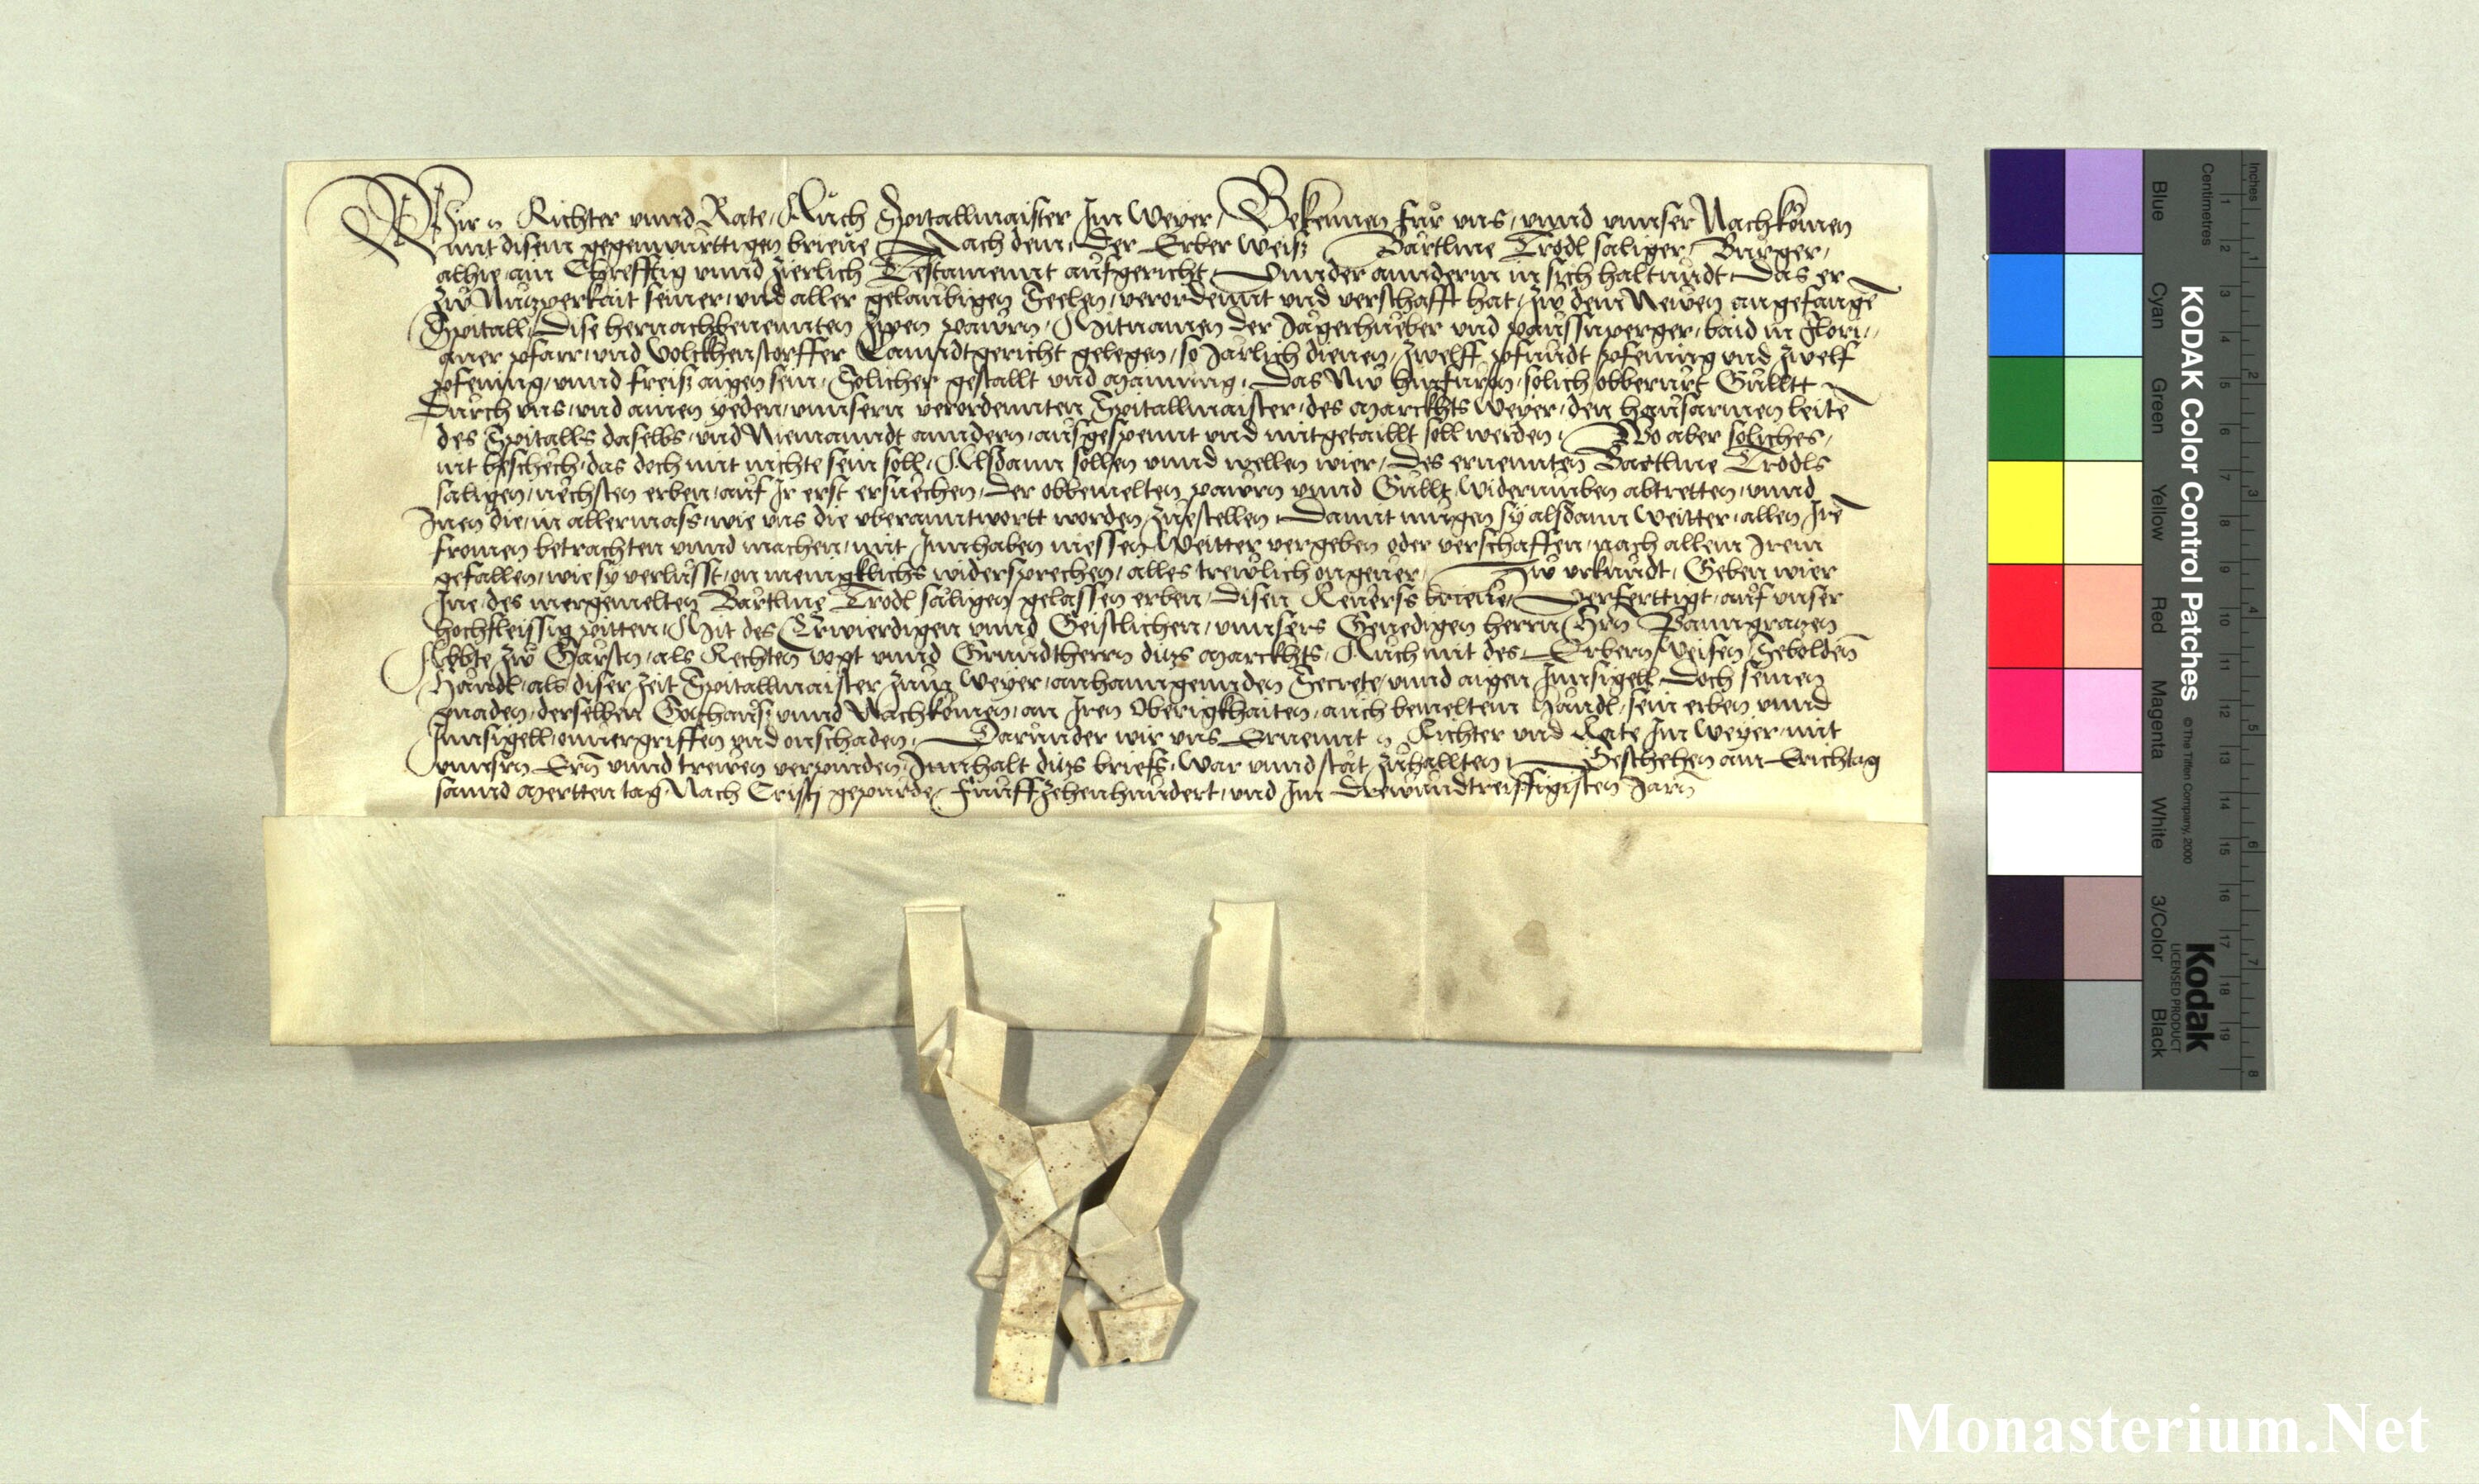 Wir n Richter vnnd Rate, Auch Spitallmaister Im Weyer, Bekennen für vns, vnnd vnnser Nachkomen
mit disem gegenwurttigen brieue, Nach dem, Der Erber Weiß Bartlme Trödl säliger, Burger,
alhie, ain Chrefftig vnnd zierlich Testamennt aufgericht, Vnnder anndern in sich haltundt, Das er
zw Nutzperkait seiner, vnd aller gelaubigen Seelen, verordennt vnd verschafft hat, Zw dem Newen angefange
Spitall, Dise hernachbenennten zwen pawrn, Mitnamen der Jägerhueber vnd paussnperger, baid in Flori,,
aner pfarr, vnd Volckhenstorffer Lanndtgericht gelegen, so Järlich dienen, zwelff pfundt pfening vnd zwelf
pfening, vnnd freiß aigen sein, Solicher gestallt vnd mainung, Das Nw hinfüron, solich obberürt Güllt
Durch vns, vnd ainen yeden, vnnsern verordennten Spitallmaister, des Marckhts Weyer, den hausarmen leite
des Spitalls daselbs, vnd Niemanndt anndern, ausgespennt vnd mitgetaillt soll werden, Wo aber soliches,
nit beschech, das doch mit nichte sein soll, Alsdann sollen vnnd wellen wier, des ernennten Bartlme Trödls
säligen, nechsten erben, auf Ir erst ersuechen, Der obbemelten pawrn vnnd Güllt, widerumben abtretten, vnnd
Inen die, in allermass, wie vns die vberanntwortt worden, zuestellen, Damit mügen sy alsdann weitter, allen Irn
fromen betrachten vnnd machen, mit Innhaben niessen Weitter vergeben oder verschaffen, nach allem Irem
gefallen, wie sy verlusst, on menigklichs widersprechen, alles trewlich ongeuer, Zw vrkundt, Geben wier
Ine, des mergemelten Bartlme Trödl säligen gelassen erben, disen Reuerss brieue, Verferttigt, auf vnser
hochfleissig pitten, Mit des Erwierdigen vnnd Geistlichen, vnnsers Genedigen herrn Hrn Panngratzen
Abbte zw Gärstn, als Rechten vogt vnnd Grundtherrn ditz Marckhts, Auch mit des Erbern Weisen Sebolden
Händl, als diser zeit Spitallmaister zum Weyer, anhanngennden Secrete, vnnd aigen Innsigell, Doch seinen
gnaden, derselben Gotzhauß, vnnd Nachkomen, an Iren Oberigkhaiten, auch bemeltem Händl, sein erben vnnd
Innsigell, onuergriffen vnd onschaden, Darunder wir vns Ernennt n Richter vnd Rate Im Weyer, mit
vnnsrn Ern vnnd trewen verpinden, Innhalt ditz briefs, war vnnd stät zuhallten, Geschehen am Erichtag
sannd Mertten tag, Nach Cristj gepurde, Funffzehenhundert, vnd Im Drewunndtreissigisten Jarn
KODAK Color Control Patches
© The Tiffen Company, 2000
Kodak
LICENSED PRODUCT
Blue Cyan Green Yellow Red Magenta White 3/Color Black
Inches 1 2 3 4 5 6 7 8
Centimetres 1 2 3 4 5 6 7 8 9 10 11 12 13 14 15 16 17 18 19
Monasterium.Net